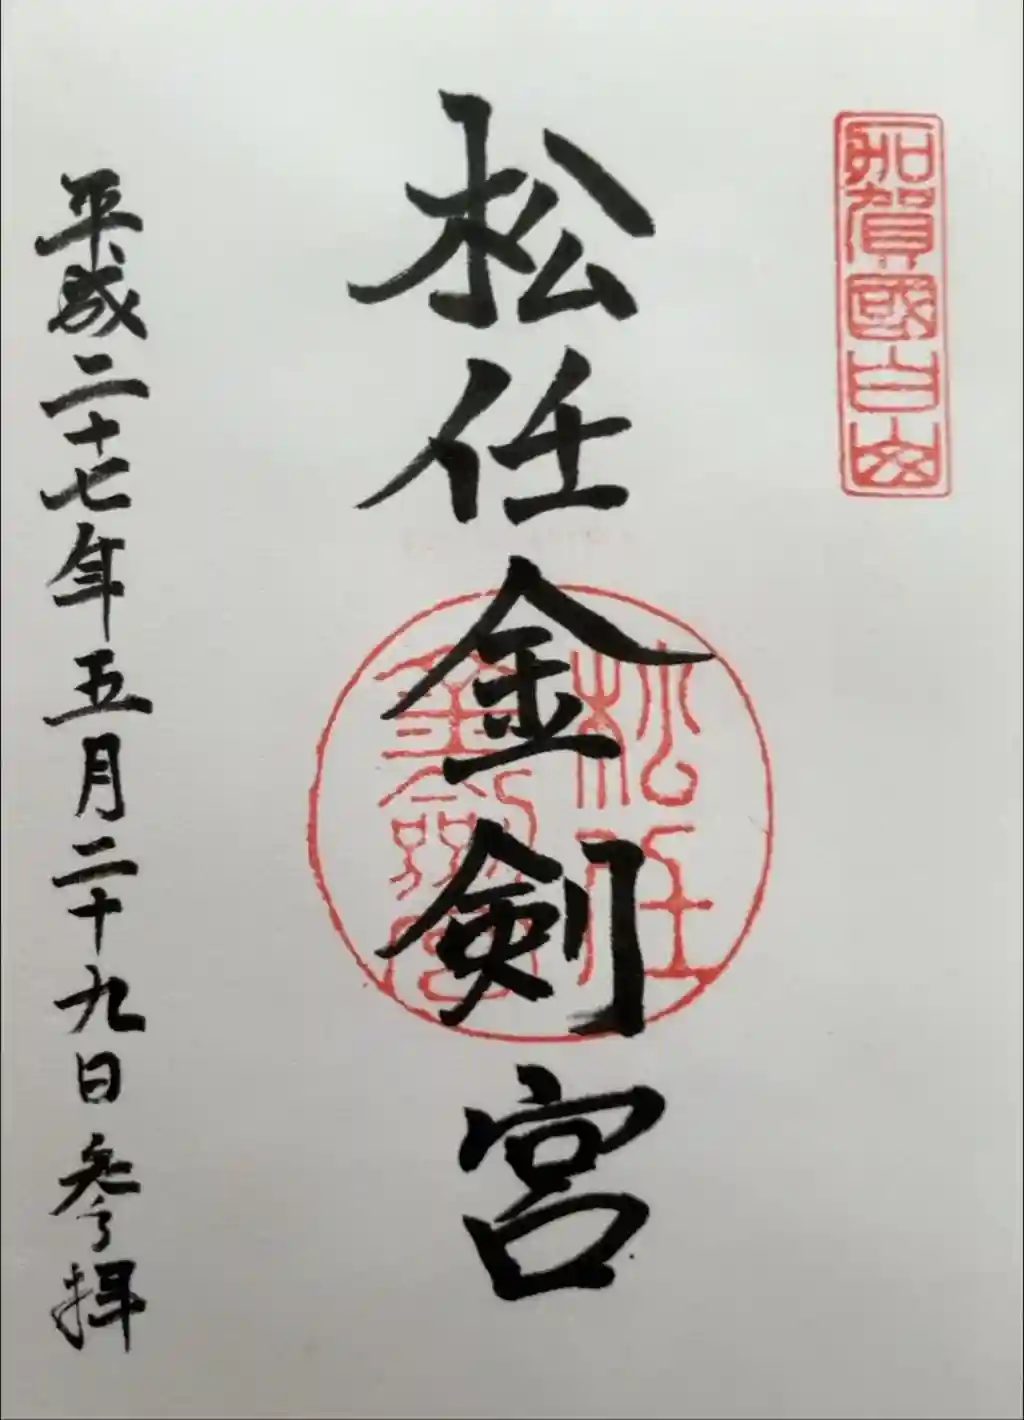 加賀國白山
松任金剣宮
松任
金劔宮
平成二十七年五月二十九日参拝